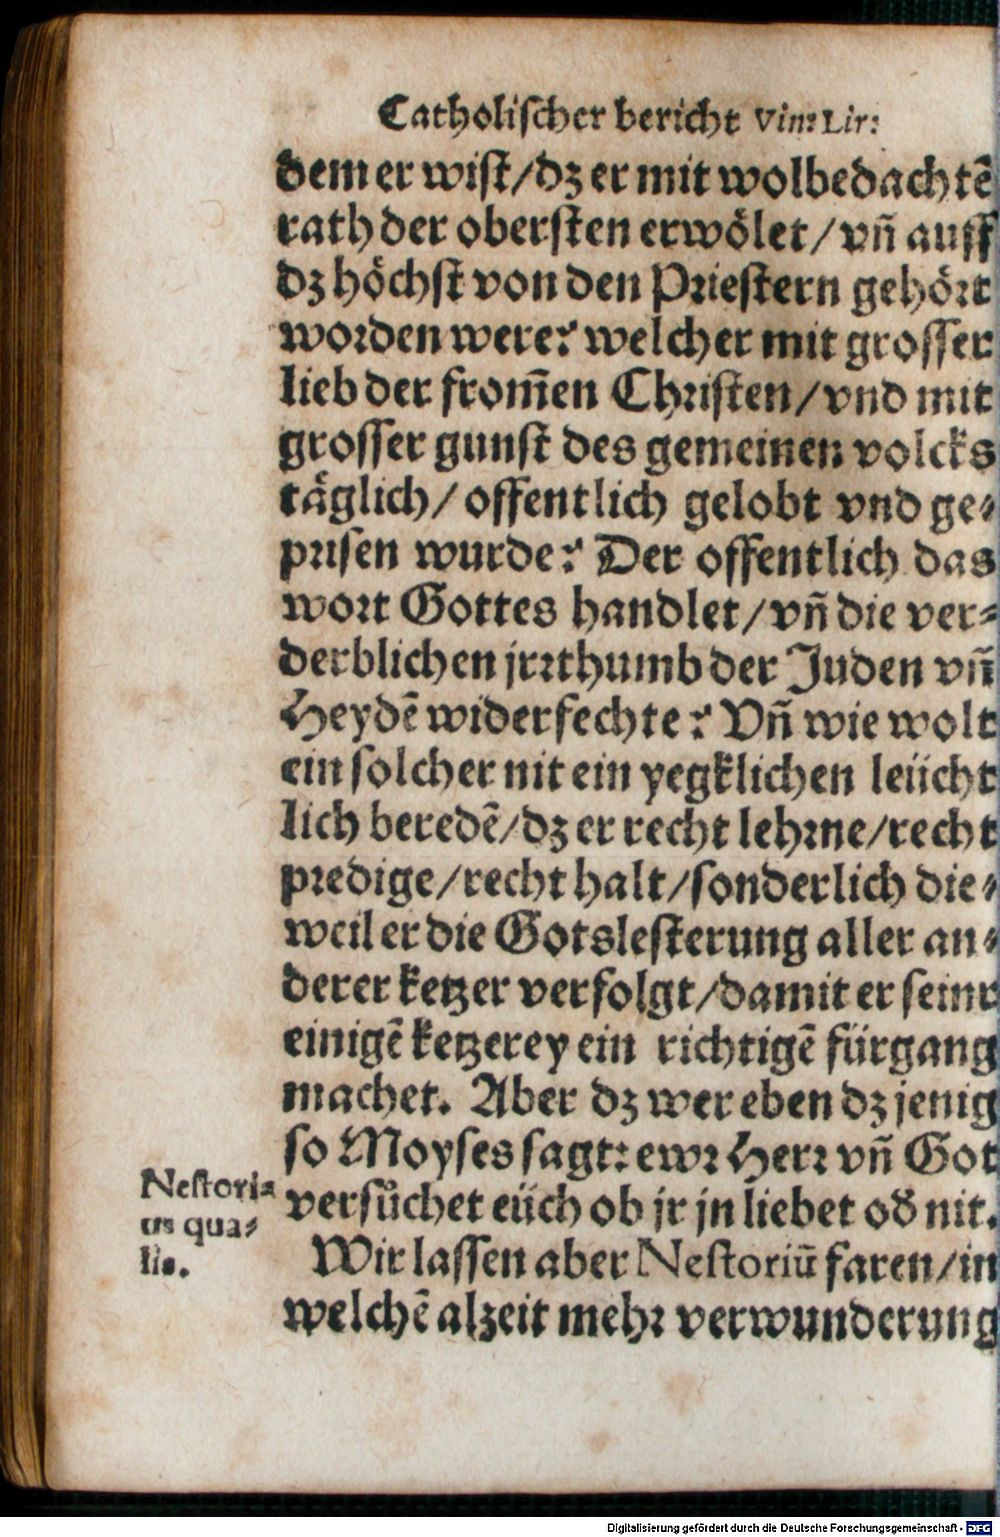 Catholischer bericht Vin: Lir:
dem er wist/dz er mit wolbedachtē
rath der obersten erwölet/vn̄ auff
dz höchst von den Priestern gehört
worden were? welcher mit grosser
lieb der from̄en Christen/vnd mit
grosser gunst des gemeinen volcks
täglich/ offentlich gelobt vnd ge⸗
prisen wurde? Der offentlich das
wort Gottes handlet/vn̄ die ver⸗
derblichen jrrthumb der Juden vn̄
Heydē widerfechte? Vn̄ wie wolt
ein solcher nit ein yegklichen leücht
lich beredē/dz er recht lehrne/recht
predige/recht halt/sonderlich die⸗
weil er die Gotslesterung aller an⸗
derer ketzer verfolgt/damit er seinr
einigē ketzerey ein richtigē fürgang
machet. Aber dz wer eben dz jenig
so Moyses sagt: ewr Herr vn̄ Got
versůchet eüch ob jr jn liebet od̄ nit.
Nestori⸗
us qua⸗
lis.
Wir lassen aber Nestoriū faren/in
welchē alzeit mehr verwunderung
Digitalisierung gefördert durch die Deutsche Forschungsgemeinschaft - DFG